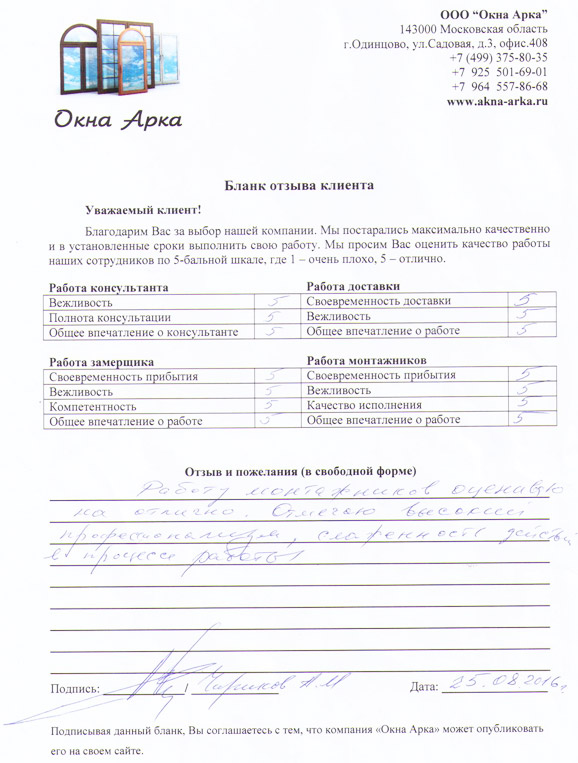 ООО “Окна Арка”
143000 Московская область
г.Одинцово, ул.Садовая, д.3, офис.408
+7 (499) 375-80-35
+7 925 501-69-01
+7 964 557-86-68
www.akna-arka.ru
Окна Арка
Бланк отзыва клиента
Уважаемый клиент!
Благодарим Вас за выбор нашей компании. Мы постарались максимально качественно
и в установленные сроки выполнить свою работу. Мы просим Вас оценить качество работы
наших сотрудников по 5-бальной шкале, где 1 – очень плохо, 5 – отлично.
Работа консультанта
Вежливость 5
Полнота консультации 5
Общее впечатление о консультанте 5
Работа доставки
Своевременность доставки 5
Вежливость 5
Общее впечатление о работе 5
Работа замерщика
Своевременность прибытия 5
Вежливость 5
Компетентность 5
Общее впечатление о работе 5
Работа монтажников
Своевременность прибытия 5
Вежливость 5
Качество исполнения 5
Общее впечатление о работе 5
Отзыв и пожелания (в свободной форме)
Работу монтажников оцениваю
на отлично. Отмечаю высокий
профессионализм, слаженность действий
в процессе работы
Подпись: / Чириков А.М Дата: 25.08.2016г
Подписывая данный бланк, Вы соглашаетесь с тем, что компания «Окна Арка» может опубликовать
его на своем сайте.